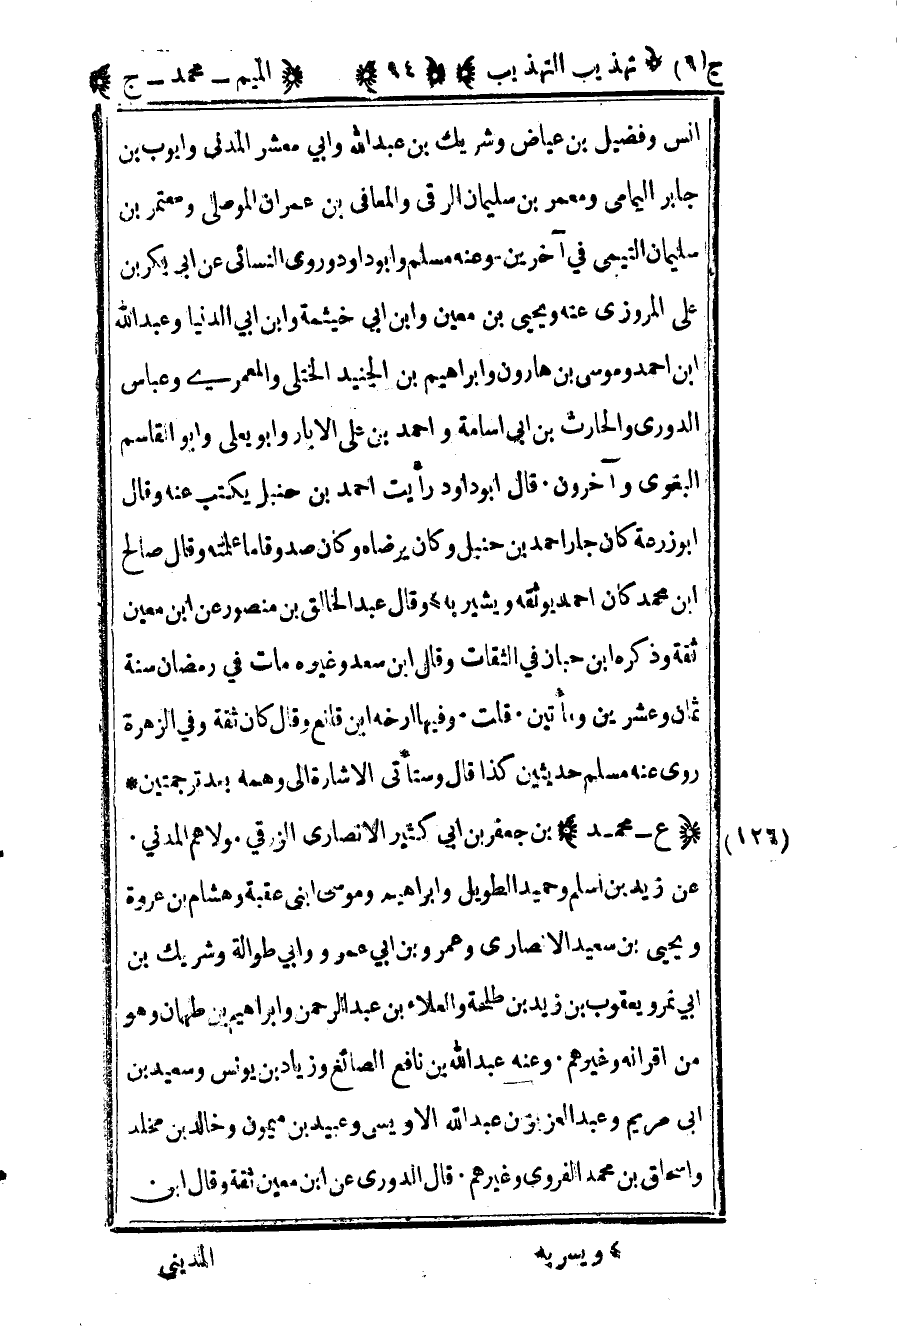 ج (٩) ﴿ تهذيب التهذيب ﴾ ﴿ ٩٤ ﴾ ﴿ الميم ـ محمد ـ ج ﴾
انس وفضيل بن عياض وشريك بن عبدالله وابي معشر المدنى وايوب بن
جابر اليمامى ومعمر بن سليمان الرقى والمعافى بن عمران الموصلى ومعتمر بن
سليمان التيمى في آخرين - وعنه مسلم وابوداود وروى النسائى عن ابي بكر بن
على المروزى عنه ويحيى بن معين وابن ابي خيثمة وابن ابي الدنيا وعبدالله
ابن احمد وموسى بن هارون وابراهيم بن الجنيد الختلى والمعمرى وعباس
الدورى والحارث بن ابي اسامة و احمد بن على الابار وابو يعلى وابو القاسم
البغوى و آخرون · قال ابوداود رأيت احمد بن حنبل يكتب عنه وقال
ابو زرعة كان جار احمد بن حنبل وكان يرضاه وكان صدوقا ما علمته وقال صالح
ابن محمد كان احمد يوثقه ويشير به ٤ وقال عبد الخالق بن منصور عن ابن معين
ثقة وذكره ابن حبان في الثقات وقال ابن سعد وغيره مات في رمضان سنة
ثمان وعشرين ومأتين · قلت · وفيها ارخه ابن قانع وقال كان ثقة وفي الزهرة
روى عنه مسلم حديثين كذا قال وستأتى الاشارة الى وهمه بعد ترجمتين *
﴿ ع ـ محمد ﴾ بن جعفر بن ابي كثير الانصارى الزرقي مولاهم المدني · (١٢٦)
عن زيد بن اسلم وحميد الطويل وابراهيم وموسى ابنى عقبة وهشام بن عروة
ويحيى بن سعيد الانصارى وعمرو بن ابي عمرو وابي طوالة وشريك بن
ابي نمر ويعقوب بن زيد بن طلحة والعلاء بن عبدالرحمن وابراهيم بن طهمان وهو
من اقرانه وغيرهم · وعنه عبدالله بن نافع الصائغ وزياد بن يونس وسعيد بن
ابى مريم وعبد العزيز بن عبدالله الاويسى وعبيد بن ميمون وخالد بن مخلد
واسحاق بن محمد الفروى وغيرهم · قال الدورى عن ابن معين ثقة وقال ابن
٤ ويسر به المدينى